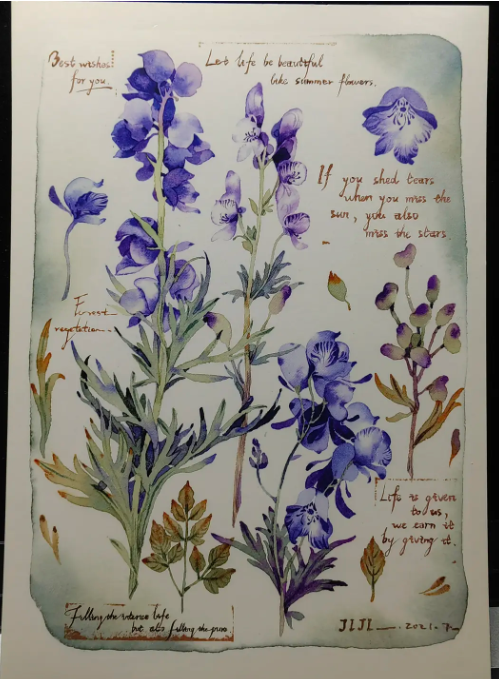 Best wishes
for you.
Let life be beautiful
like summer flowers.
If you shed tears
when you miss the
sun, you also
miss the stars.
Forest
vegetation.
Life is given
to us,
we earn it
by giving it.
Filling the life
but also filling the
JIJI 2021.7